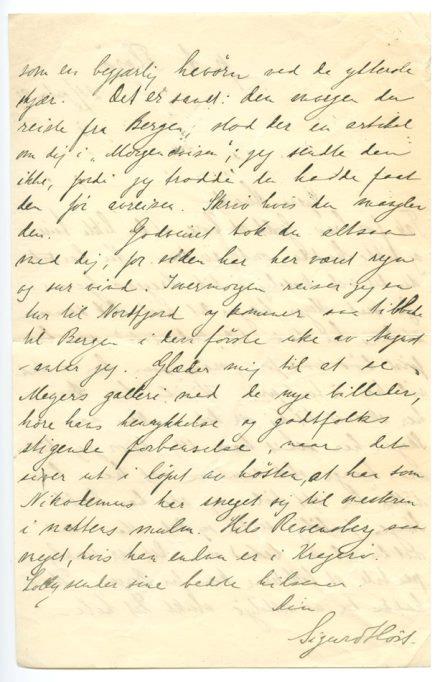 som en begjærlig havörn ved de ytterste
skjær. Det er sandt: den morgen du
reiste fra Bergen, stod der en artikel
om dig i "Morgenavisen"; jeg sendte den
ikke, fordi jeg trodde du hadde faat
den før avreisen. Skriv hvis du mangler
den. Godveiret tok du altsaa
med dig, for siden har her været regn
og sur vind. Imermorgen reiser jeg en
tur til Nordfjord og kommer saa tilbake
til Bergen i den første uke av August
- antar jeg. Glæder mig til at se
Meyers galleri med de nye billeder,
høre hans henrykkelse og godtfolks
stigende forbauselse, naar det
siver ut i løpet av høsten, at han som
Nikodemus har sneget sig til mesteren
i nattens mulm. Hils Revensberg saa
meget, hvis han endnu er i Kragerø.
Lolly sender sine bedste hilsener
Din
Sigurd Høst.